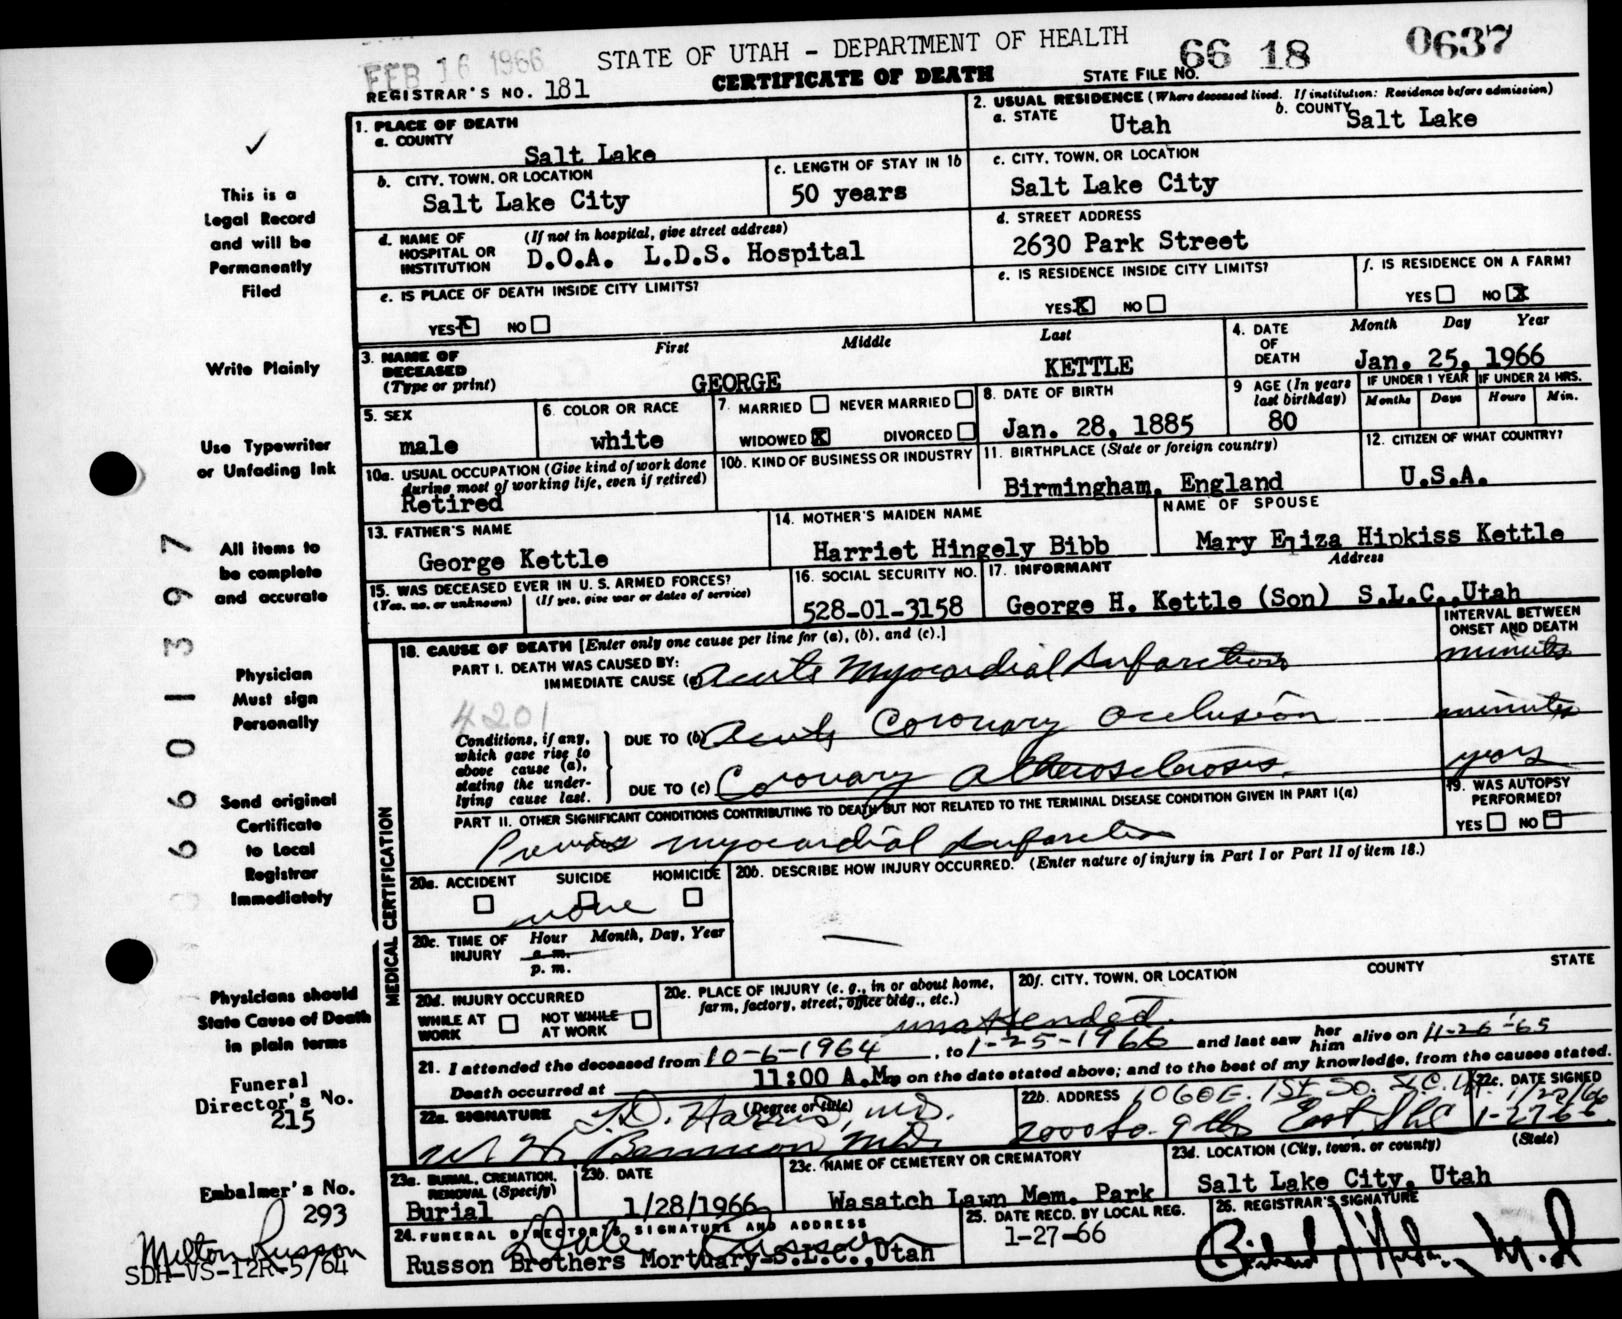 FEB 16 1966
STATE OF UTAH - DEPARTMENT OF HEALTH
66 18 0637
REGISTRAR'S NO. 181
CERTIFICATE OF DEATH
STATE FILE NO.
1. PLACE OF DEATH
a. COUNTY
Salt Lake
2. USUAL RESIDENCE (Where deceased lived. If institution: Residence before admission)
a. STATE Utah
b. COUNTY Salt Lake
b. CITY, TOWN, OR LOCATION
Salt Lake City
c. LENGTH OF STAY IN 1b
50 years
c. CITY, TOWN, OR LOCATION
Salt Lake City
d. NAME OF HOSPITAL OR INSTITUTION
(If not in hospital, give street address)
D.O.A. L.D.S. Hospital
d. STREET ADDRESS
2630 Park Street
e. IS PLACE OF DEATH INSIDE CITY LIMITS?
YES X NO
e. IS RESIDENCE INSIDE CITY LIMITS?
YES X NO
f. IS RESIDENCE ON A FARM?
YES NO X
3. NAME OF DECEASED (Type or print)
First Middle Last
GEORGE KETTLE
4. DATE OF DEATH
Month Day Year
Jan. 25, 1966
5. SEX
male
6. COLOR OR RACE
white
7. MARRIED NEVER MARRIED
WIDOWED X DIVORCED
8. DATE OF BIRTH
Jan. 28, 1885
9 AGE (In years last birthday)
80
IF UNDER 1 YEAR
Months Days
IF UNDER 24 HRS.
Hours Min.
10a. USUAL OCCUPATION (Give kind of work done during most of working life, even if retired)
Retired
10b. KIND OF BUSINESS OR INDUSTRY
11. BIRTHPLACE (State or foreign country)
Birmingham, England
12. CITIZEN OF WHAT COUNTRY?
U.S.A.
13. FATHER'S NAME
George Kettle
14. MOTHER'S MAIDEN NAME
Harriet Hingely Bibb
NAME OF SPOUSE
Mary Eliza Hipkiss Kettle
15. WAS DECEASED EVER IN U. S. ARMED FORCES?
(Yes, no, or unknown) (If yes, give war or dates of service)
16. SOCIAL SECURITY NO.
528-01-3158
17. INFORMANT Address
George H. Kettle (Son) S.L.C., Utah
18. CAUSE OF DEATH [Enter only one cause per line for (a), (b), and (c).]
INTERVAL BETWEEN ONSET AND DEATH
PART I. DEATH WAS CAUSED BY:
IMMEDIATE CAUSE (a) Acute Myocardial Infarction minutes
4201
Conditions, if any, which gave rise to above cause (a), stating the underlying cause last.
DUE TO (b) Acute Coronary Occlusion minutes
DUE TO (c) Coronary Atherosclerosis. years
PART II. OTHER SIGNIFICANT CONDITIONS CONTRIBUTING TO DEATH BUT NOT RELATED TO THE TERMINAL DISEASE CONDITION GIVEN IN PART I(a)
Previous Myocardial Infarction
19. WAS AUTOPSY PERFORMED?
YES NO
MEDICAL CERTIFICATION
20a. ACCIDENT SUICIDE HOMICIDE
none
20b. DESCRIBE HOW INJURY OCCURRED. (Enter nature of injury in Part I or Part II of item 18.)
20c. TIME OF INJURY
Hour Month, Day, Year
a. m.
p. m.
20d. INJURY OCCURRED
WHILE AT WORK NOT WHILE AT WORK
20e. PLACE OF INJURY (e. g., in or about home, farm, factory, street, office bldg., etc.)
20f. CITY, TOWN, OR LOCATION COUNTY STATE
unattended.
21. I attended the deceased from 10-6-1964, to 1-25-1966 and last saw her him alive on 11-26-65
Death occurred at 11:00 A.M. on the date stated above; and to the best of my knowledge, from the causes stated.
22a. SIGNATURE (Degree or title)
22b. ADDRESS
22c. DATE SIGNED
1-27-66
23a. BURIAL, CREMATION, REMOVAL (Specify)
Burial
23b. DATE
1/28/1966
23c. NAME OF CEMETERY OR CREMATORY
Wasatch Lawn Mem. Park
23d. LOCATION (City, town, or county) (State)
Salt Lake City, Utah
24. FUNERAL DIRECTOR'S SIGNATURE AND ADDRESS
Russon Brothers Mortuary-S.L.C., Utah
25. DATE RECD. BY LOCAL REG.
1-27-66
26. REGISTRAR'S SIGNATURE
This is a
Legal Record
and will be
Permanently
Filed
Write Plainly
Use Typewriter
or Unfading Ink
All items to
be complete
and accurate
Physician
Must sign
Personally
Send original
Certificate
to Local
Registrar
Immediately
Physicians should
State Cause of Death
in plain terms
Funeral
Director's No.
215
Embalmer's No.
293
Milton Russon
SDH-VS-12R-5/64
06601397